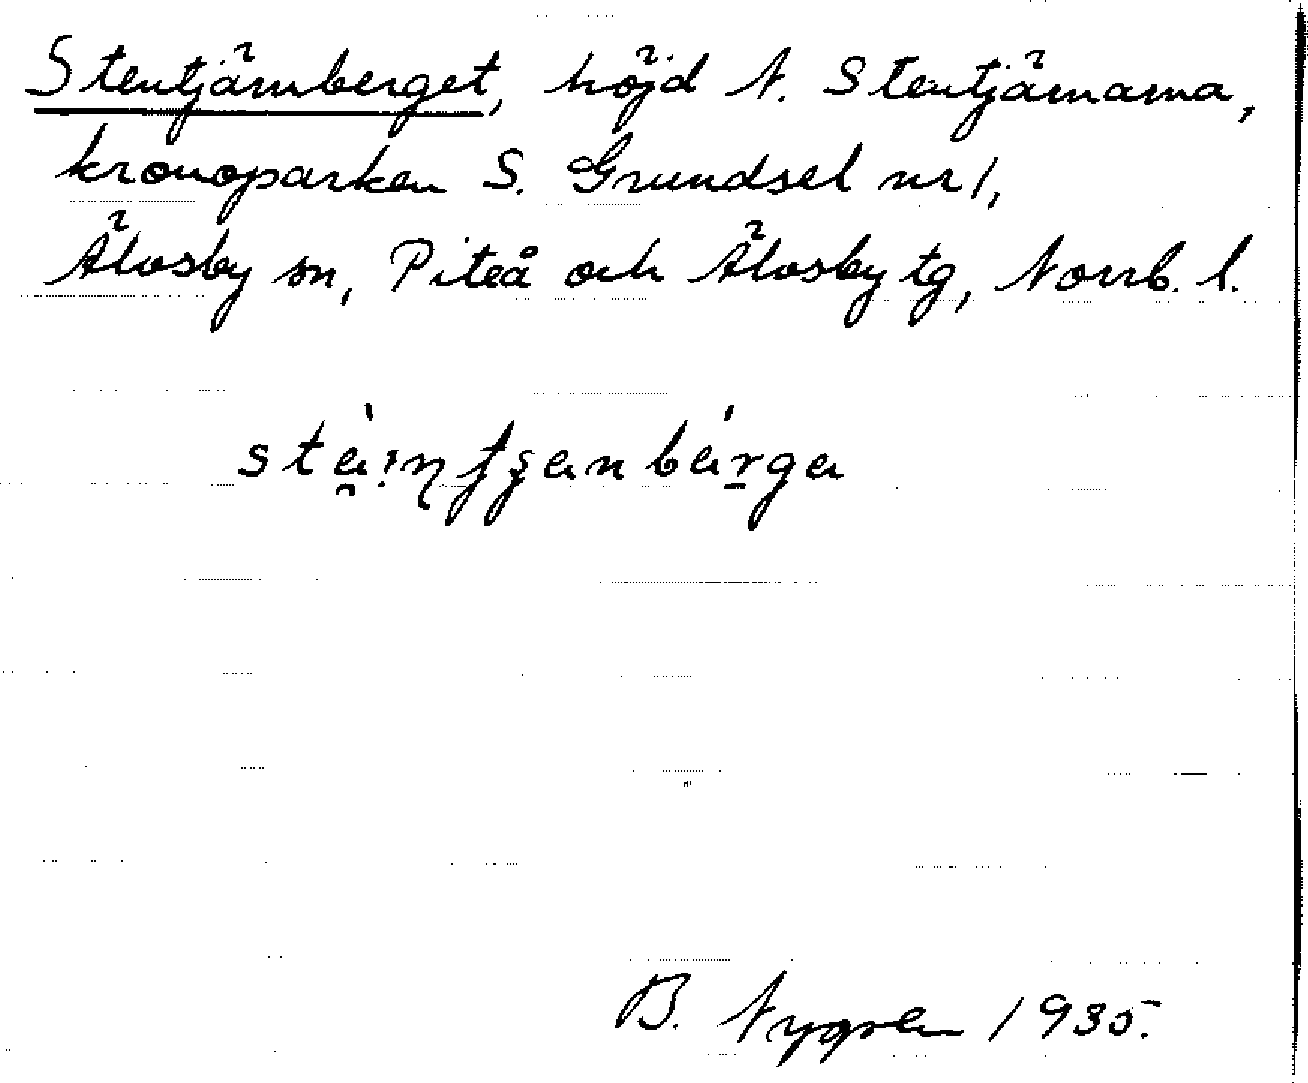 Stentjärnberget, höjd N. Stentjärnarna,
kronoparken S. Grundsel nr 1,
Älvsby sn, Piteå och Älvsby tg, Norrb. l.
B. Nygren 1935.